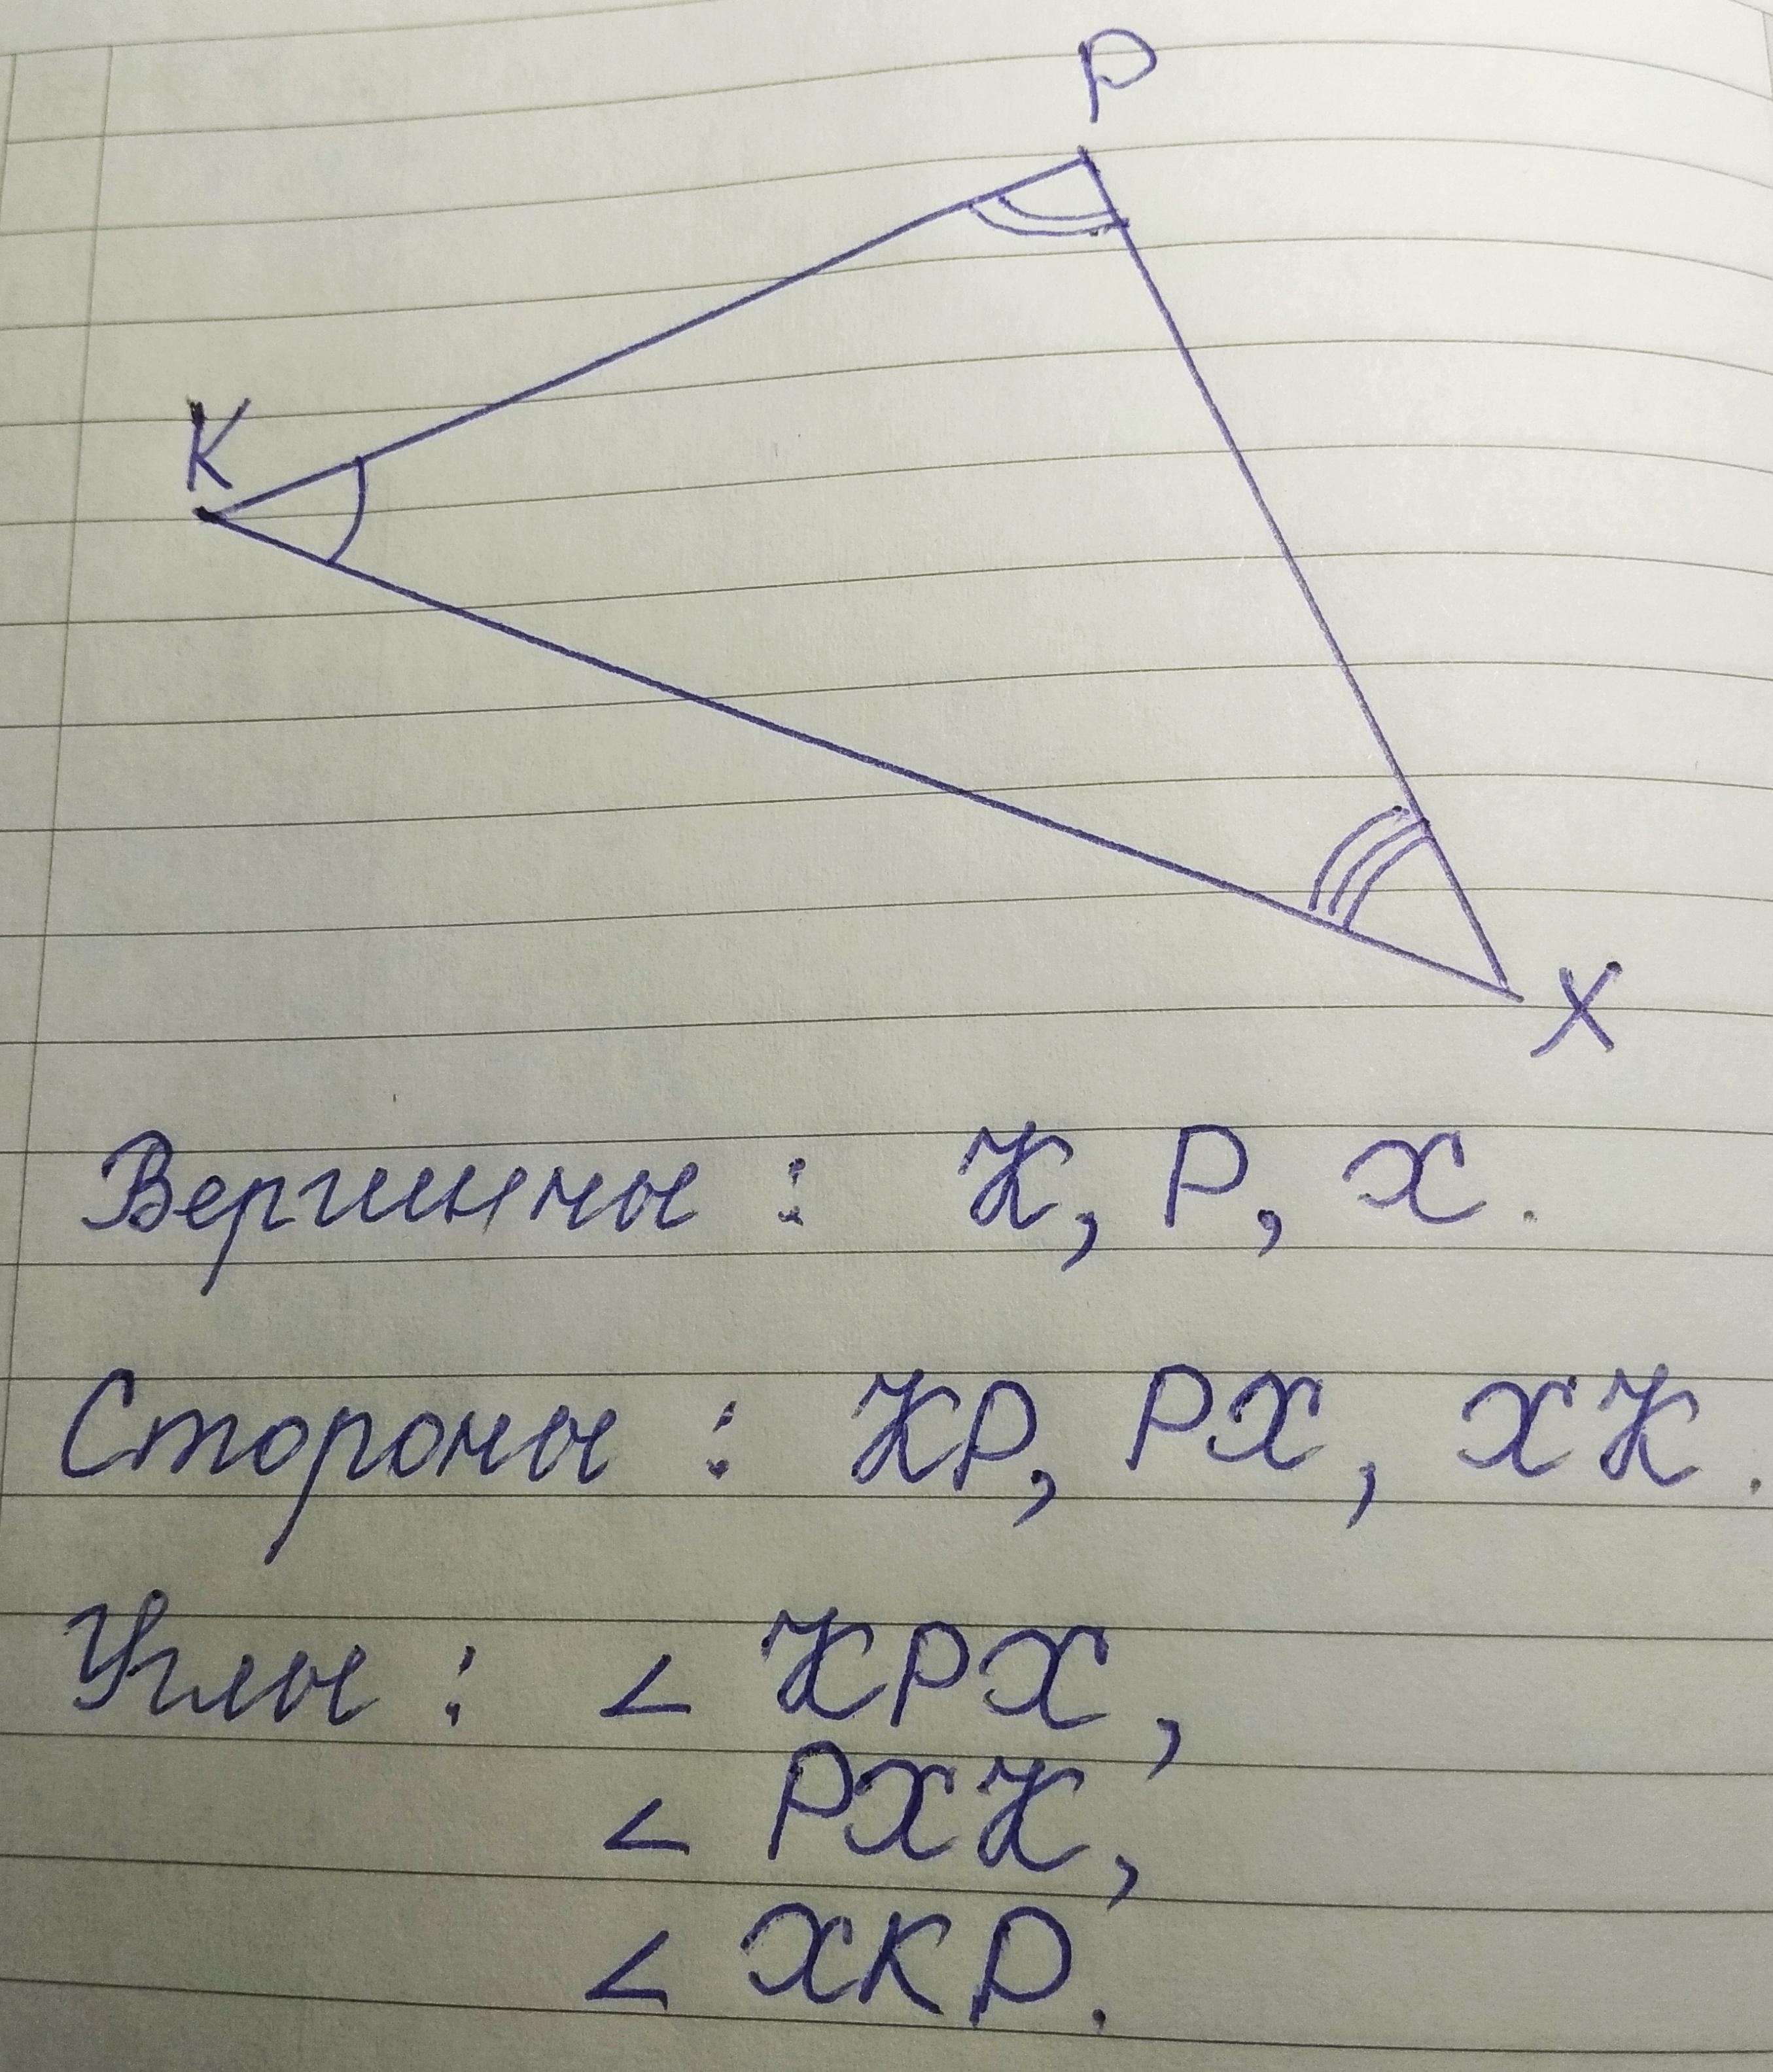 Р
К
Х
Вершины : К, Р, Х.
Стороны : КР, РХ, ХК.
Углы : ∠ КРХ,
∠ РХК,
∠ ХКР.